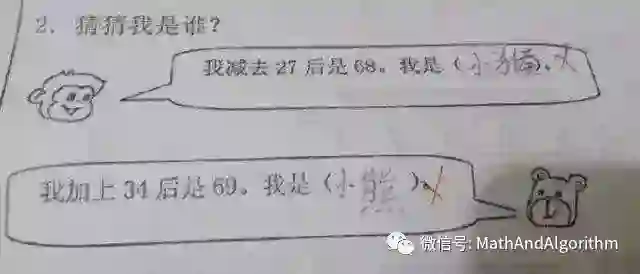 2. 猜猜我是谁?
我减去 27 后是 68。我是(小猫)。
我加上 34 后是 69。我是(小熊)。
微信号: MathAndAlgorithm